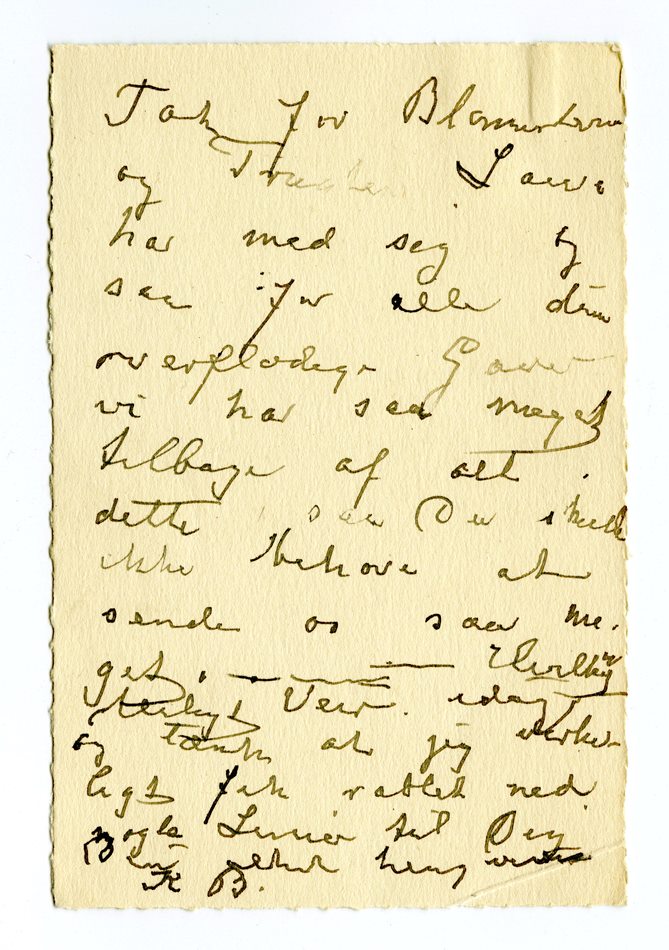 Tak for Blomsterne
og Lawe
har med sig og
saa for alle dine
overflødige Gaver
vi har saa meget
tilbage af alt
dette saa Du skulle
ikke behøve at
sende os saa me-
get. — — —
Veir idag,
og tænk at jeg virke-
ligt fik rablet ned
nogle Linier til Dig
B.